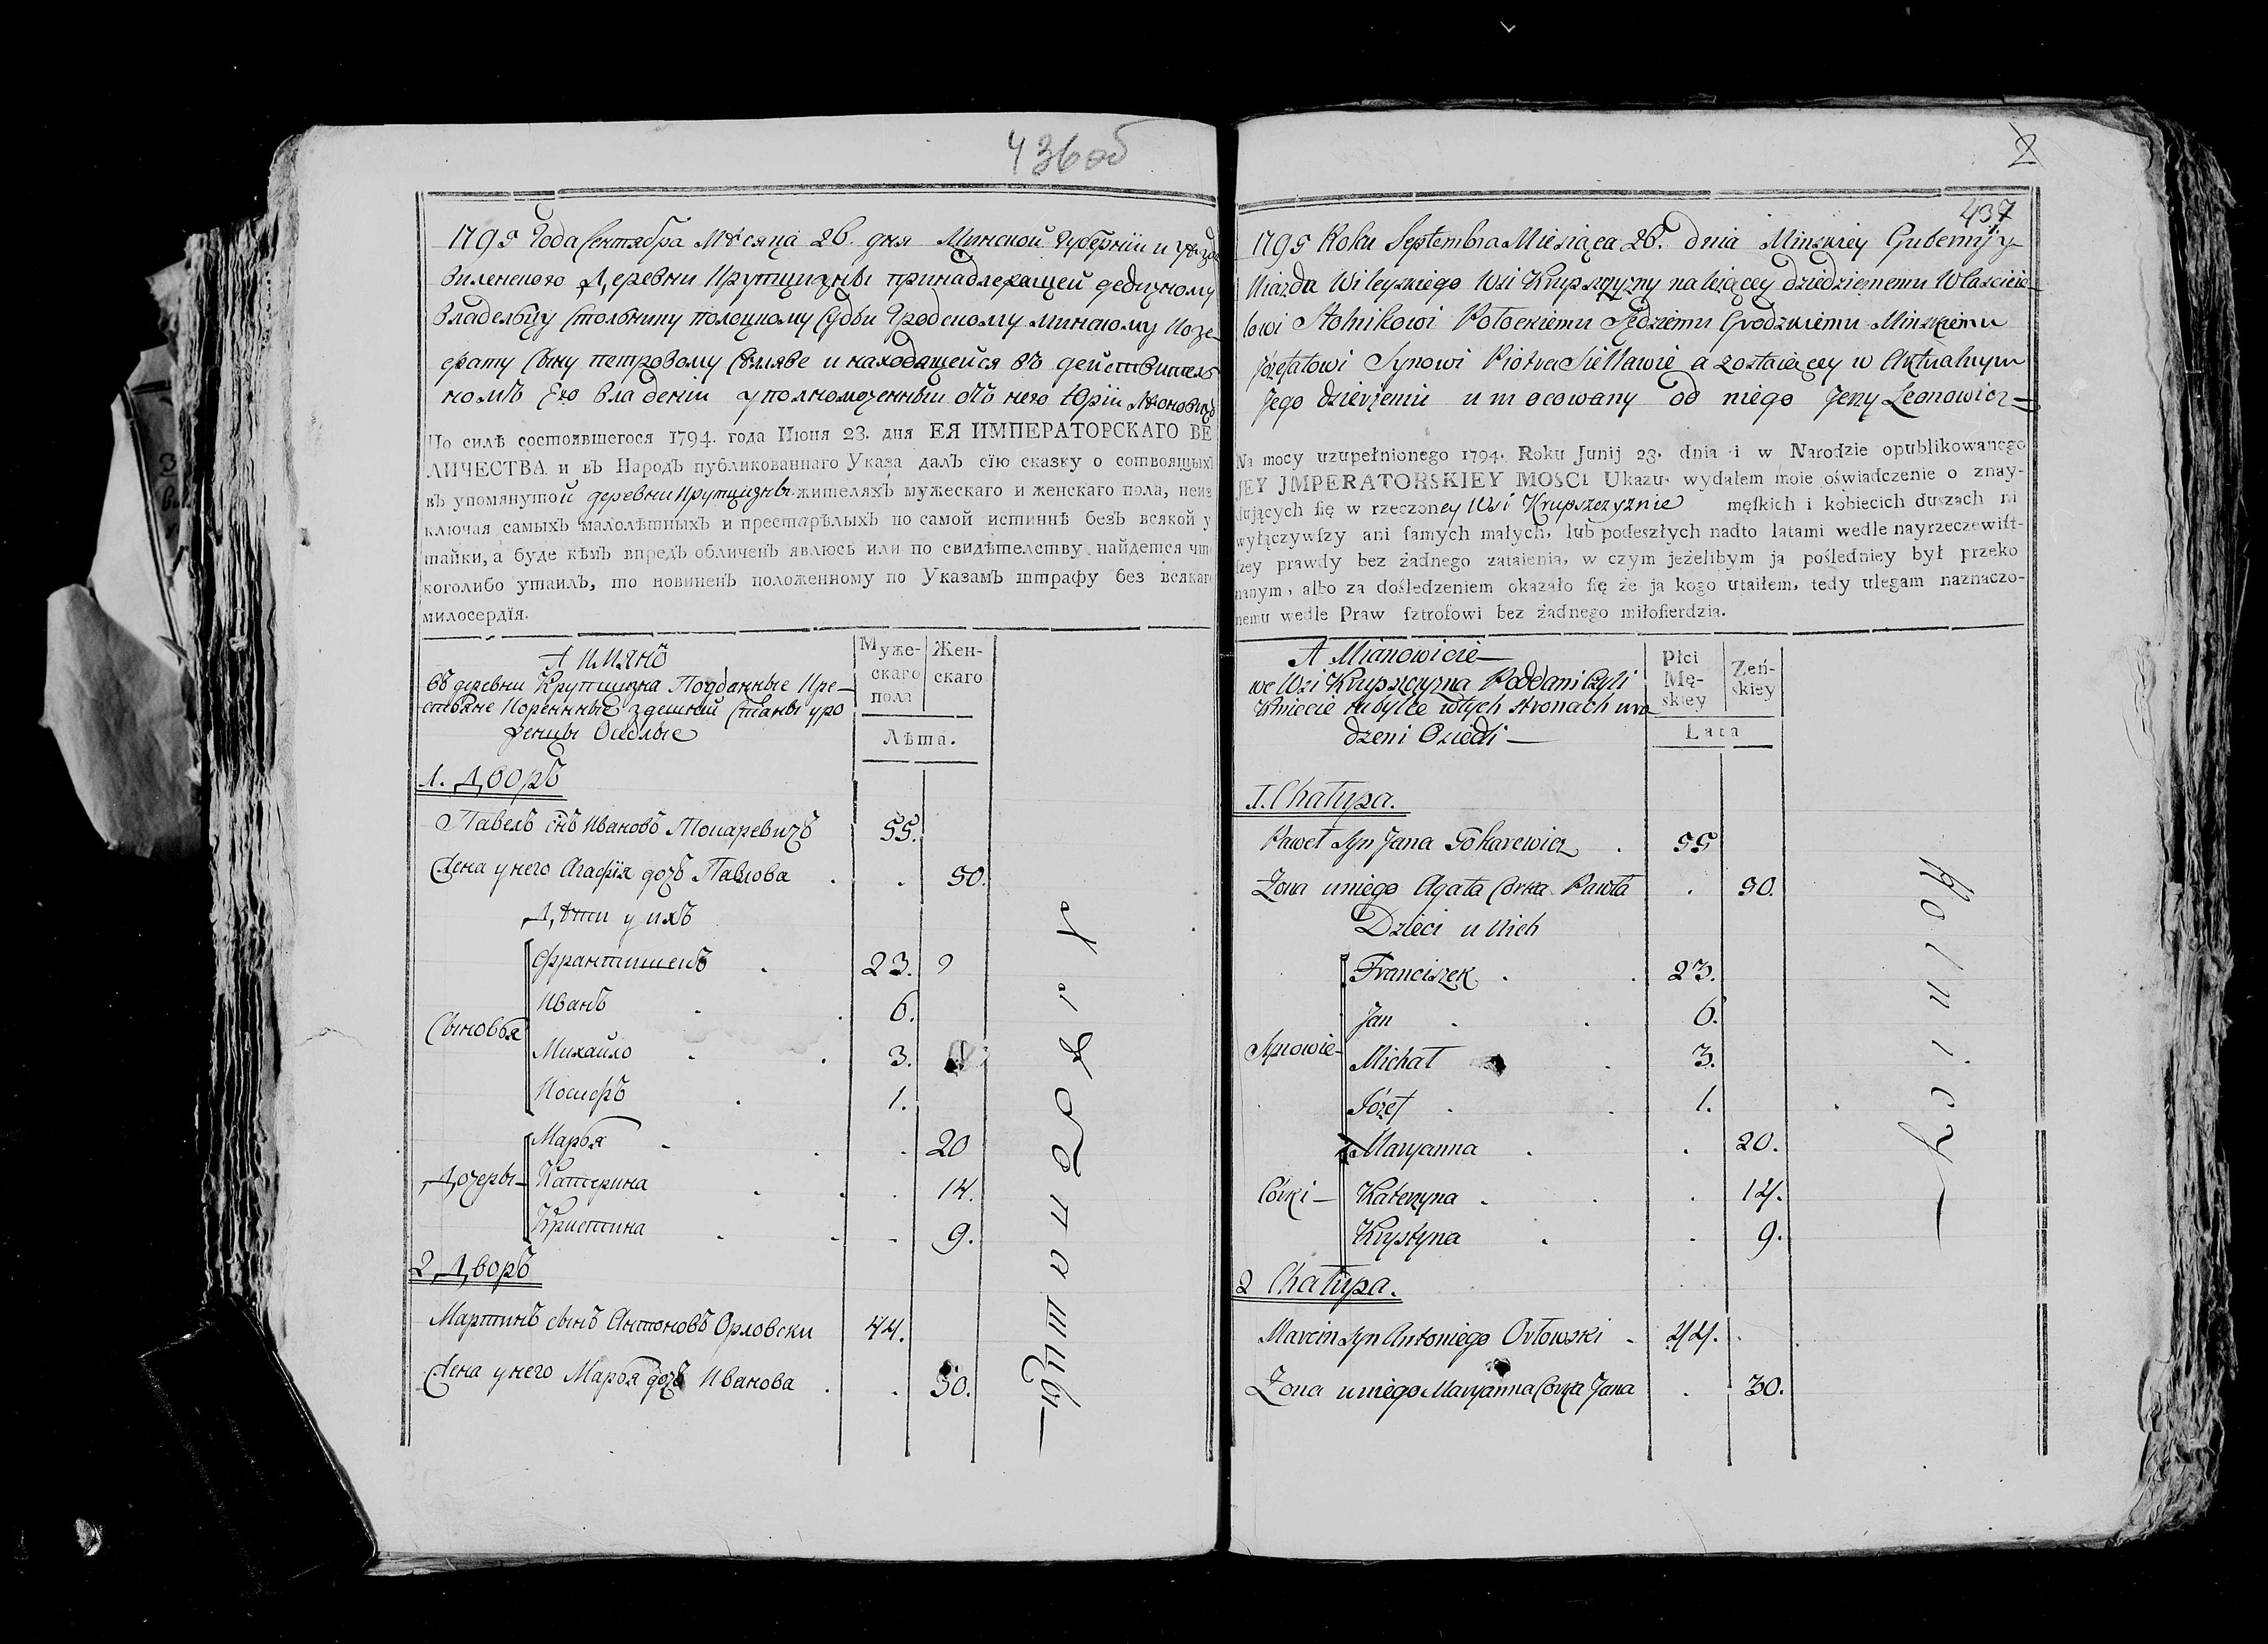 436об
1795 Года Сентября Мѣсяца 26. дня Минской Губерніи и уѣзда
виленского Деревни Крупщизны принадлежащей дедичному
владельцу Стольнику полоцкому Судьи Гродскому минскому Иозе-
фату Сыну петровому Селяве и находящейся въ действитель
номъ Его владеніи уполномоченный отъ него Юрій Леоновичъ
По силѣ состоявшегося 1794. года Июня 23. дня ЕЯ ИМПЕРАТОРСКАГО ВЕ
ЛИЧЕСТВА и въ Народъ публикованнаго Указа далъ сїю сказку о сотвоящыхъ
въ упомянутой деревни Крупщизнѣ жителяхъ мужескаго и женскаго пола, неиз
ключая самыхъ малолѣтныхъ и престарѣлыхъ по самой истиннѣ безъ всякой у
тайки, а буде кѣмъ впредъ обличенъ явлюсь или по свидѣтелству найдется что
коголибо утаилъ, то повиненъ положенному по Указамъ штрафу без всякаго
милосердїя.
А имянѡ
въ деревни Крупщизна Подданные Кре-
стьяне Коренные здешнiй Страны уро
женцы Оседлые
Муже-
скаго
пола
Жен-
скаго
Лѣта.
1. Дворъ
Павелъ снъ Ивановъ Токаревичъ 55.
Жена унего Агафія дочь Павлова 50.
Дѣти у ихъ
Сыновья
Франтишекъ 23.
Иванъ 6.
Михайло 3.
Иосифъ 1.
Дочеры
Марья 20
Катерина 14.
Криштина 9.
2 Дворъ
Мартинъ сынъ Антоновъ Орловски 44.
Жена унего Марья дочь Иванова 30.
2
437
1795 Roku Septembra Miesiąca 26. dnia Minskiey Gubernij y
Uiazdu Wileyskiego Wsi Krupszczyzny należącey dziedzicznemu Własciecie-
lowi Stolnikowi Połockiemu Sędziemu Grodzkiemu Minskiemu
Józefatowi Synowi Piotra Siellawie a zostaiącey w Aktualnym
Jego dzierżeniu umocowany od niego Jerzy Leonowicz
Na mocy uzupełnionego 1794. Roku Junij 23. dnia i w Narodzie opublikowanego
JEY JMPERATORSKIEY MOSCI Ukazu. wydałem moie oświadczenie o znay-
dujących się w rzeczoney Wsi Krupszczyznie męſkich i kobiecich duszach ni
wyłączywſzy ani ſamych małych, lub podeszłych nadto latami wedle nayrzeczewiſt-
ſzey prawdy bez żadnego zataienia, w czym jeżelibym ja poślednièy był przeko
nanym, albo za dośledzeniem okazało ſię że ja kogo utaiłem, tedy ulegam naznaczo-
nemu wedle Praw ſztrofowi bez żadnego miłoſierdzia.
A Mianowicie
we Wsi Krupszczyzna Poddani Czyli
Kmiecie tubylce wtych stronach uro
dzeni Osiedli
Płci
Mę-
skiey
Żeń-
skiey
Lata
1. Chałupa.
Paweł Syn Jana Tokarewicz 55
Żona uniego Agata Corka Pawła 50.
Dzieci u Nich
Synowie
Franciszek 23.
Jan 6.
Michał 3.
Józef 1.
Córki
Maryanna 20.
Katerzyna 14.
Krystyna 9.
2 Chałupa.
Marcin Syn Antoniego Orłowski 44.
Żona uniego Maryanna Corka Jana 30.